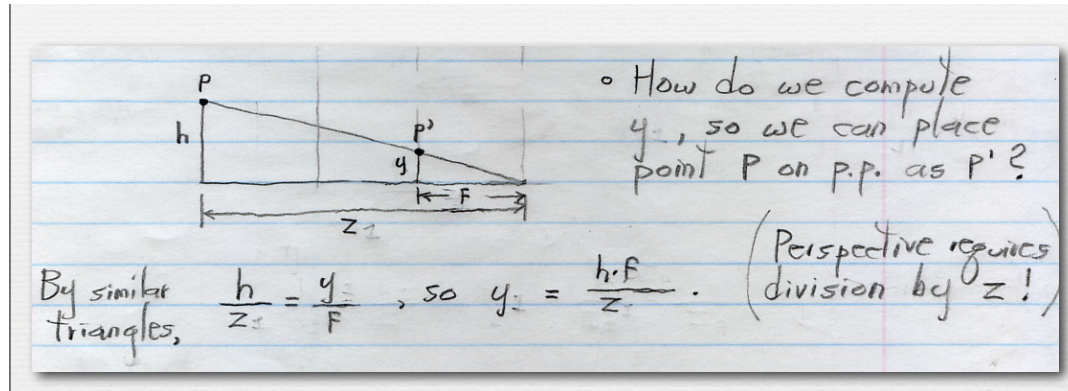 P
h
P'
y
F
z₁
• How do we compute
y₁, so we can place
point P on p.p. as P'?
By similar
triangles,
h/z₁ = y₁/F , so y₁ = h·F/z₁ .
(Perspective requires
division by z!)